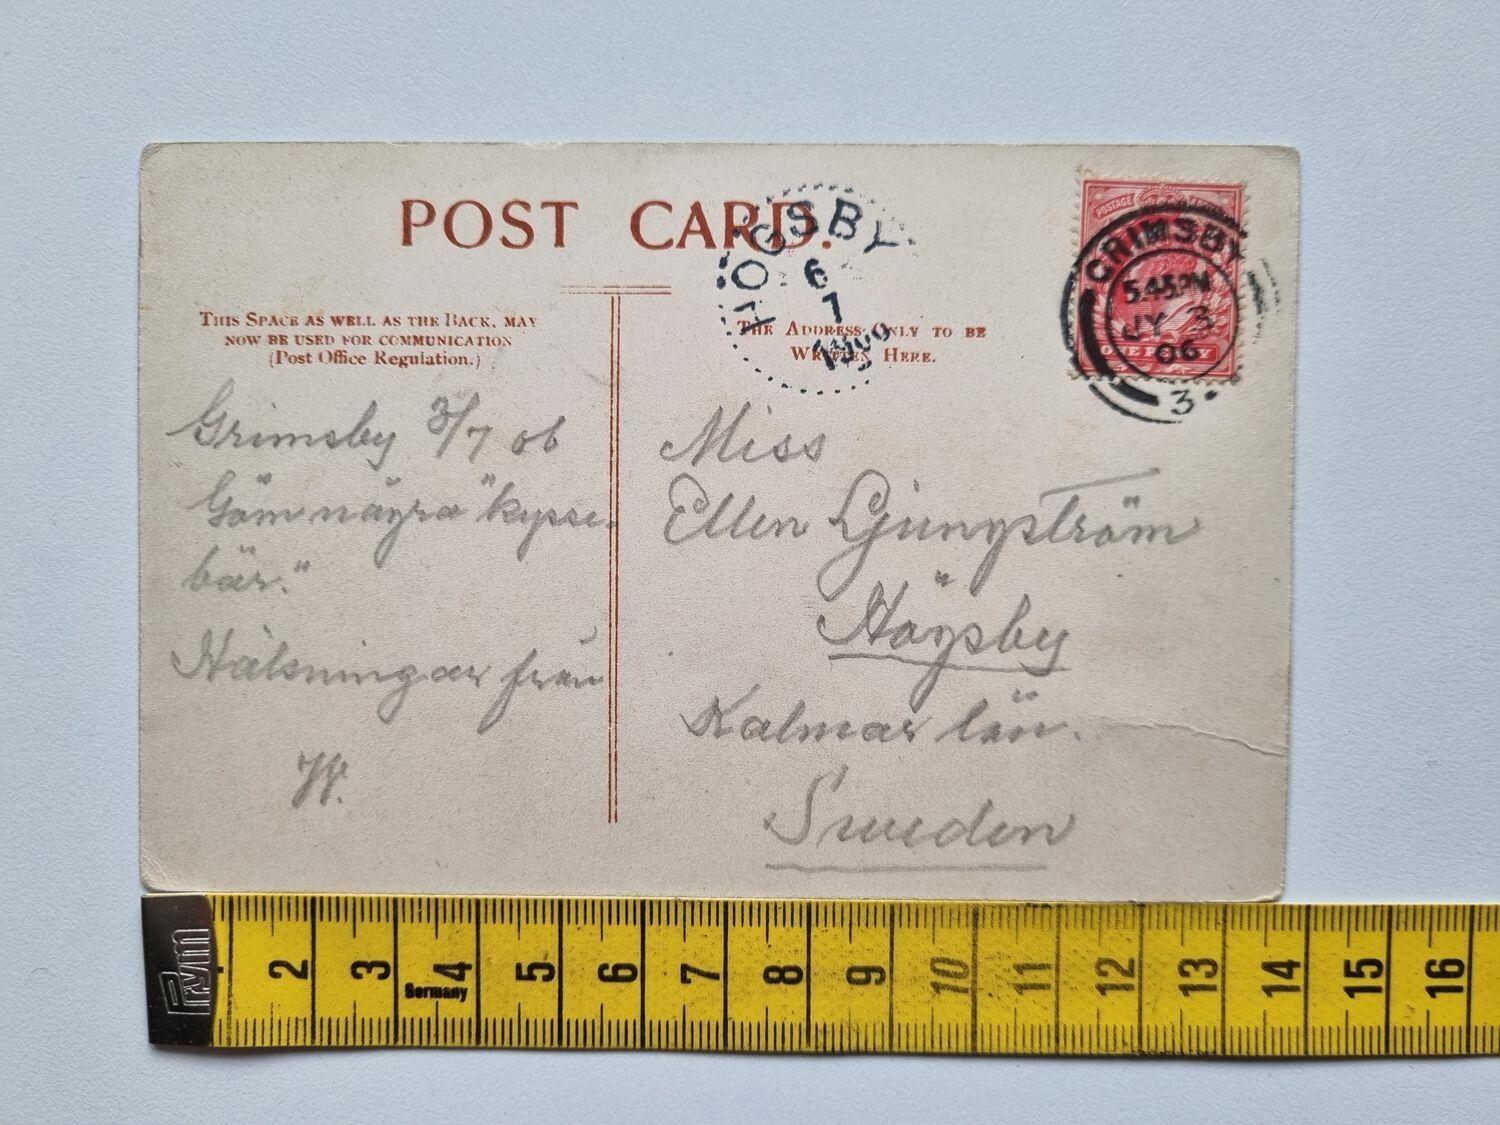 POST CARD.
HÖGSBY
6
7
1906
POSTAGE
GRIMSBY
5.45PM
JY 3
06
3
ONE PENNY
THIS SPACE AS WELL AS THE BACK, MAY
NOW BE USED FOR COMMUNICATION
(Post Office Regulation.)
THE ADDRESS ONLY TO BE
WRITTEN HERE.
Grimsby 3/7 06
Göm några "kysse-
bär."
Hälsningar från
W.
Miss
Ellen Ljungström
Högsby
Kalmar län.
Sweden
Prym
2 3 4 5 6 7 8 9 10 11 12 13 14 15 16
Germany